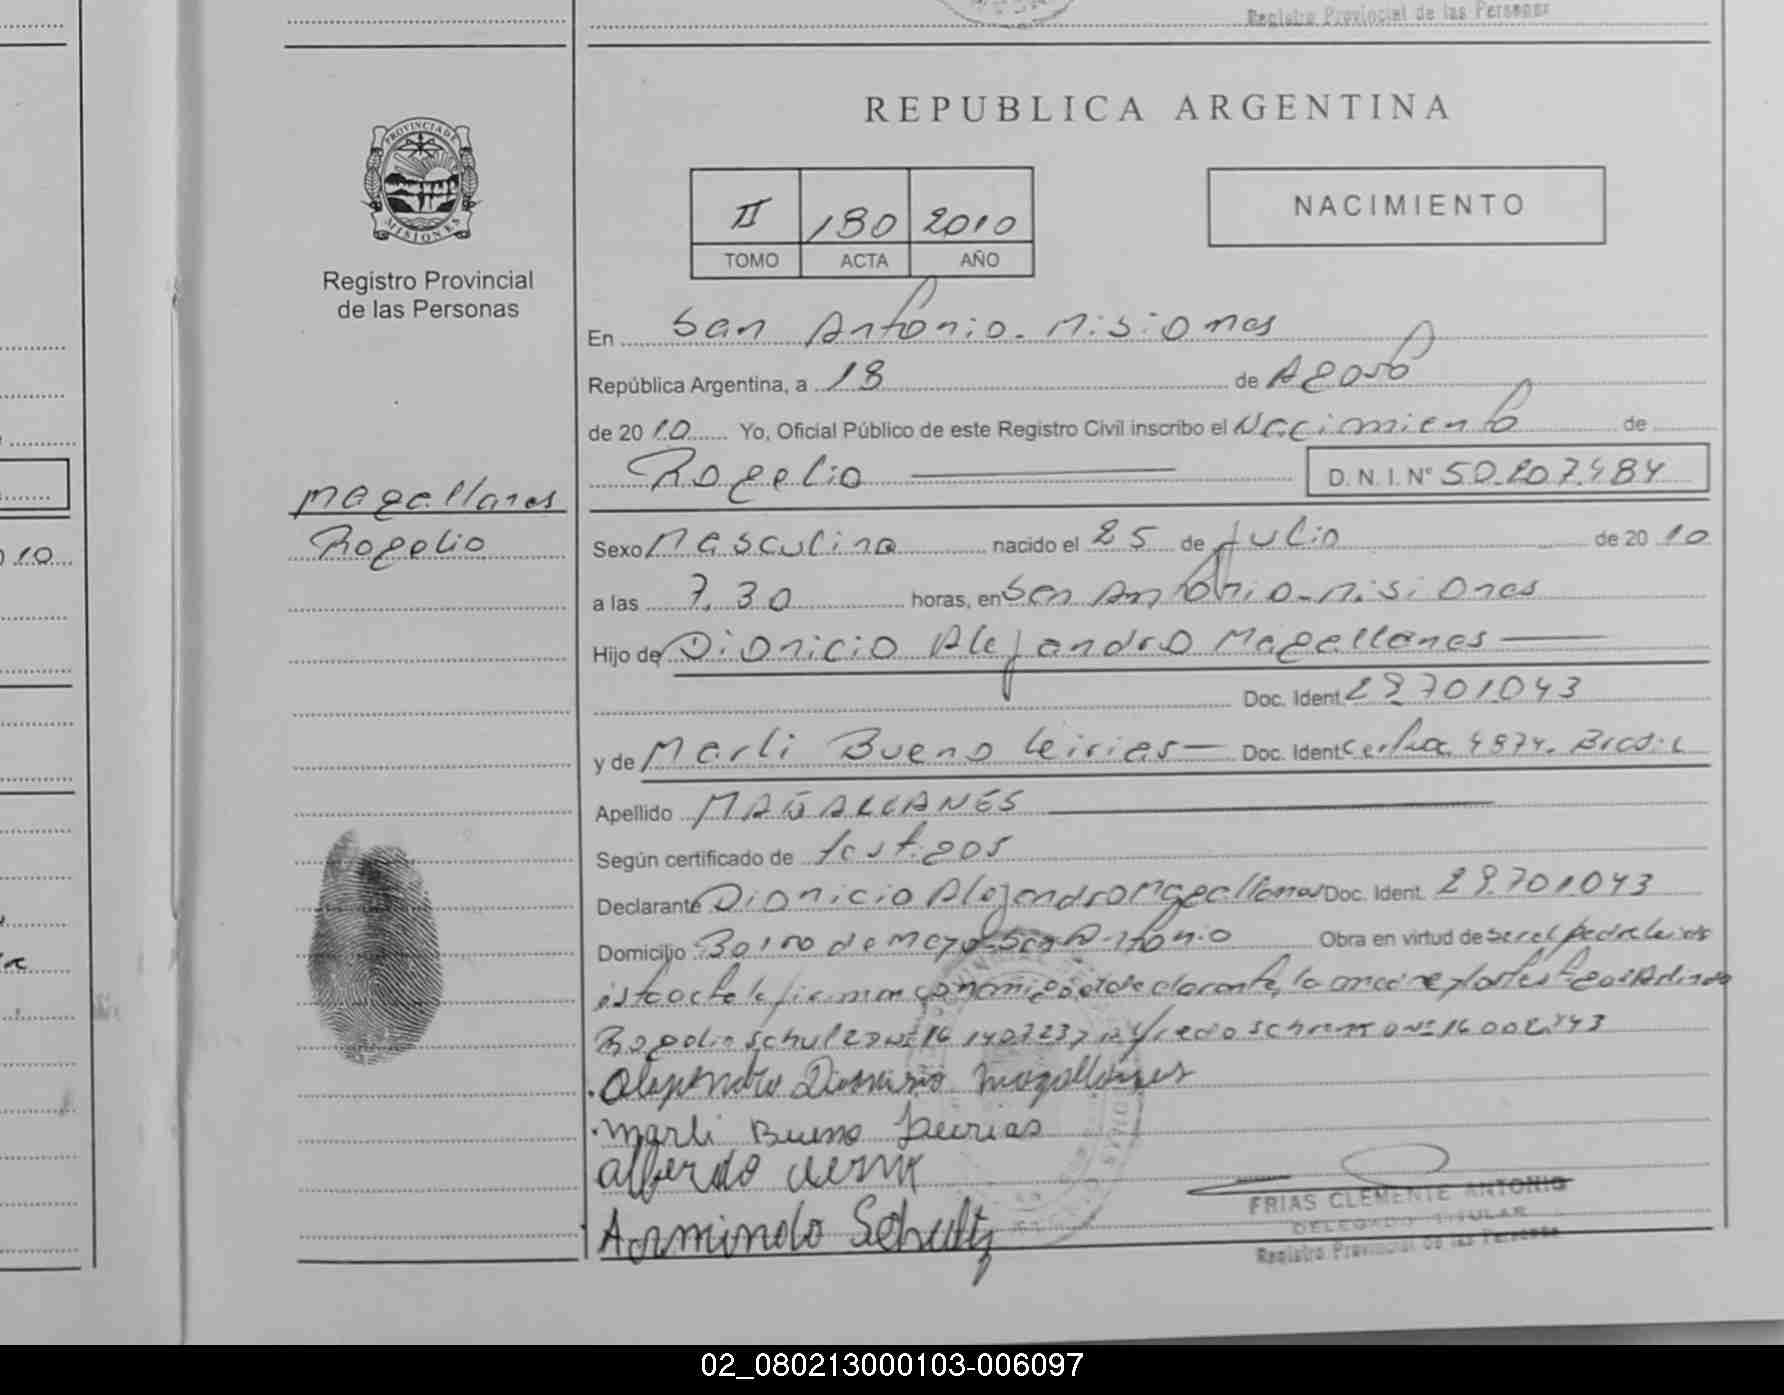 Registro Provincial de las Personas
PROVINCIA DE
MISIONES
Registro Provincial
de las Personas
REPUBLICA ARGENTINA
II 180 2010
TOMO ACTA AÑO
NACIMIENTO
En San Antonio. Misiones
República Argentina, a 18 de Agosto
de 2010 Yo, Oficial Público de este Registro Civil inscribo el Nacimiento de
Rogelio D.N.I.Nº 50.207.484
Magallanes
Rogelio
Sexo Masculino nacido el 25 de Julio de 2010
a las 7.30 horas, en San Antonio-Misiones
Hijo de Dionicio Alejandro Magallanes
Doc. Ident. 29701043
y de Marli Bueno Leirias Doc. Ident 4874. Brasil
Apellido MAGALLANES
Según certificado de testigos
Declarante Dionicio Alejandro Magallanes Doc. Ident. 29.701.043
Domicilio 30 de Mayo San Antonio Obra en virtud de ser el padre leidos
este acta la firman conmigo el declarante, la madre y los testigos Armindo
Schulz Nº 16
Alejandro Dionisio Magallanes
Marli Bueno Leirias
Armindo Schultz
FRIAS CLEMENTE ANTONIO
DELEGADO TITULAR
Registro Provincial de las Personas
10
02_080213000103-006097